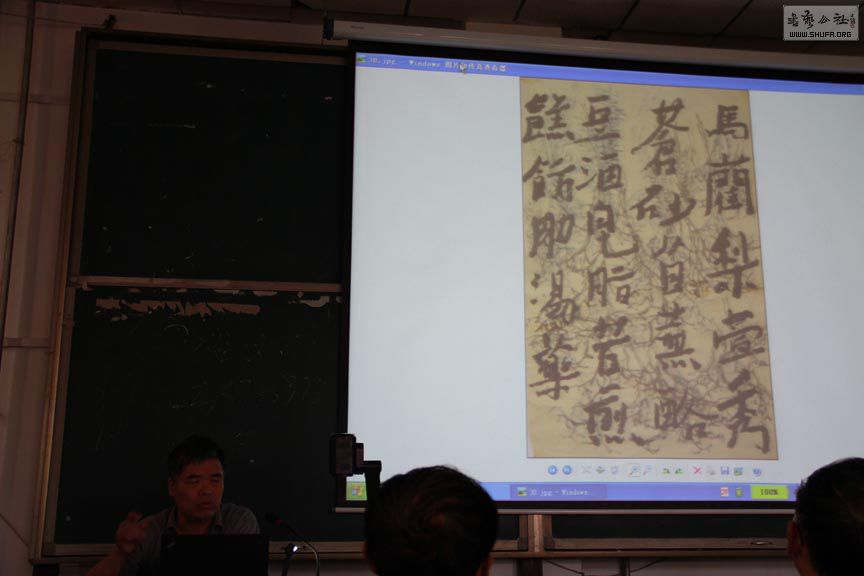 書藝公社
WWW.SHUFA.ORG
30.jpg - Windows 图片和传真查看器
馬蘭梨壹秀
蒼砂省蕪略
豆酒皃脂苦煎
饊餶助湯藥
30.jpg - Windows
100%